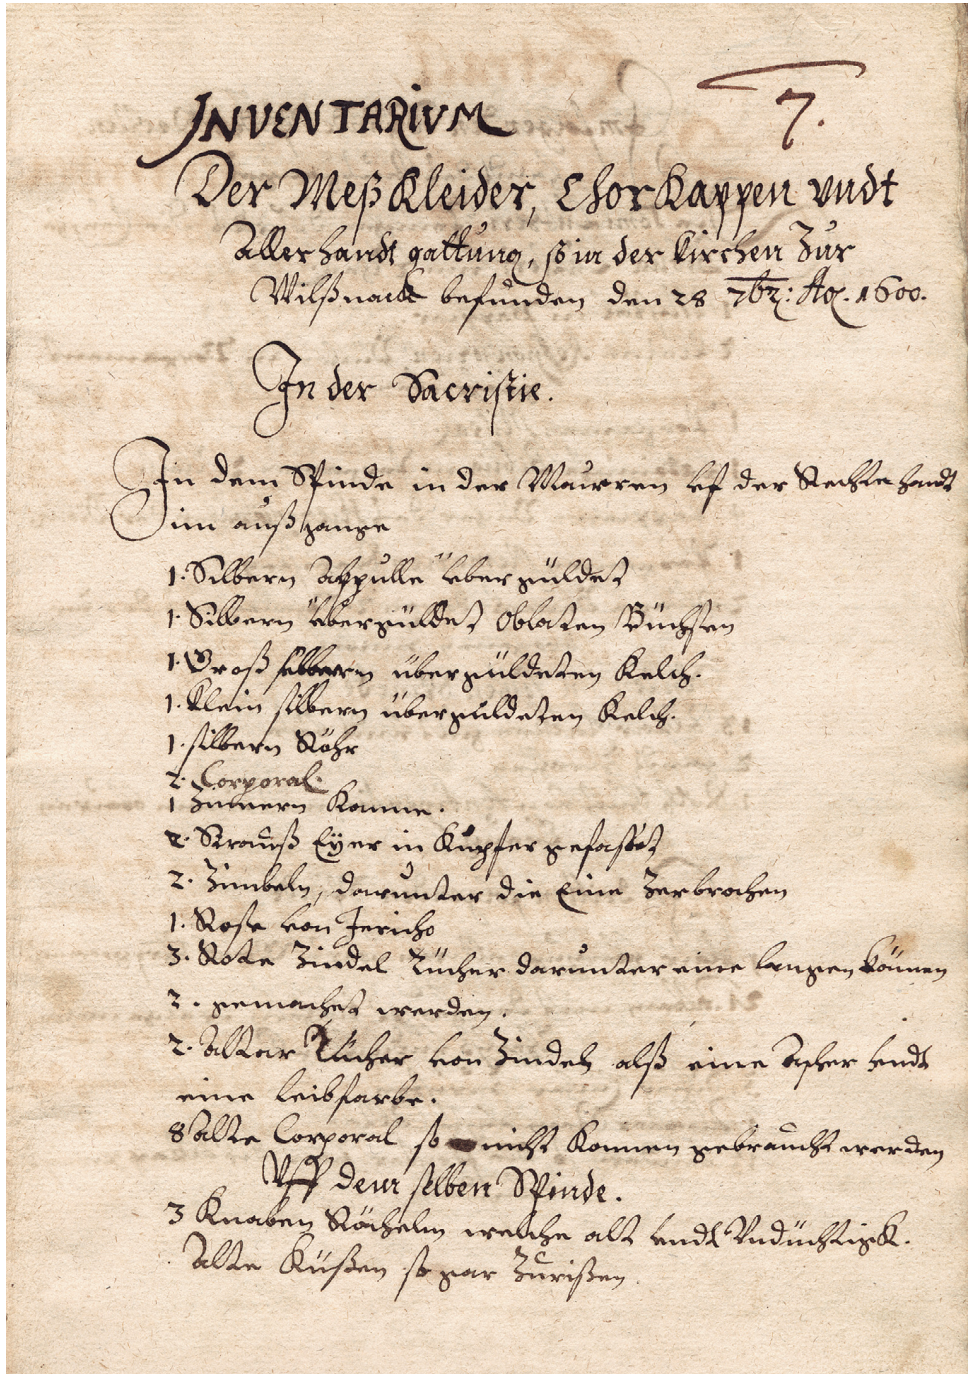 INVENTARIUM
7.
Der Meß Kleider, Chor Kappen vndt
Allerhandt gattung, so in der kirchen Zur
Wilßnack befunden den 28 7br: Ao. 1600.
In der Sacristie.
In dem Spinde in der Maurren vf der Rechte handt
im außgange
1. Silbern Appulle überguldet
1. Silbern überguldet Oblaten Büchsen
1. Groß silbern übergüldeten Kelch.
1. klein silbern überguldeten Kelch.
1. silbern Röhr
2. Corporal.
1 Zinnern Kanne.
2. Strauß Eyer in Kupfer gefasset
2. Zimbeln, darunter die Eine Zerbrochen
1. Rose von Jericho
3. Rote Zindel Tücher darunter eine langen können
2. gemachet werden.
2. Altar Tücher von Zindel alß eine Ascher vndt
eine leibfarbe.
8 alte Corporal so nicht konnen gebraucht werden
Vff dem selben Spinde.
3 Knaben Röchelin welche alt vndt Vndüchtigk.
Alte Küßen so gar Zurißen.